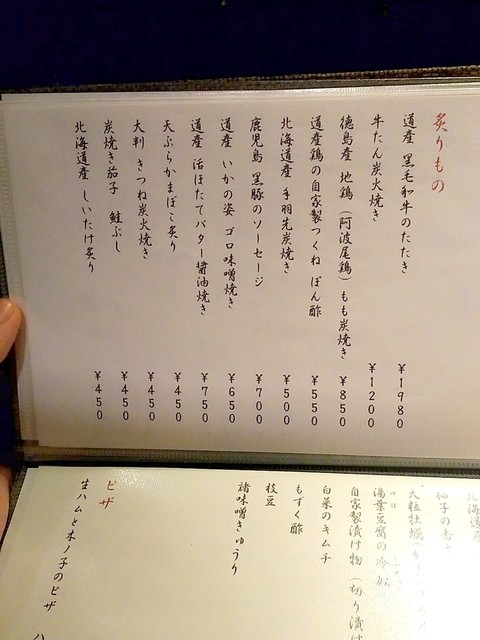 炙りもの
道産 黒毛和牛のたたき ¥1980
牛たん炭火焼き ¥1200
徳島産 地鶏（阿波尾鶏）もも炭焼き ¥850
道産鶏の自家製つくね ぽん酢 ¥550
北海道産 手羽先炭焼き ¥500
鹿児島 黒豚のソーセージ ¥700
道産 いかの姿 ゴロ味噌焼き ¥650
道産 活ほたてバター醤油焼き ¥750
天ぷらかまぼこ炙り ¥450
大判 きつね炭火焼き ¥450
炭焼き茄子 鮭ぶし ¥450
北海道産 しいたけ炙り ¥450
北海道
大粒牡蠣
湯葉豆腐の冷
自家製漬け物（切り漬け
白菜のキムチ
もずく酢
枝豆
諸味噌きゅうり
ピザ
生ハムと木ノ子のピザ ハ